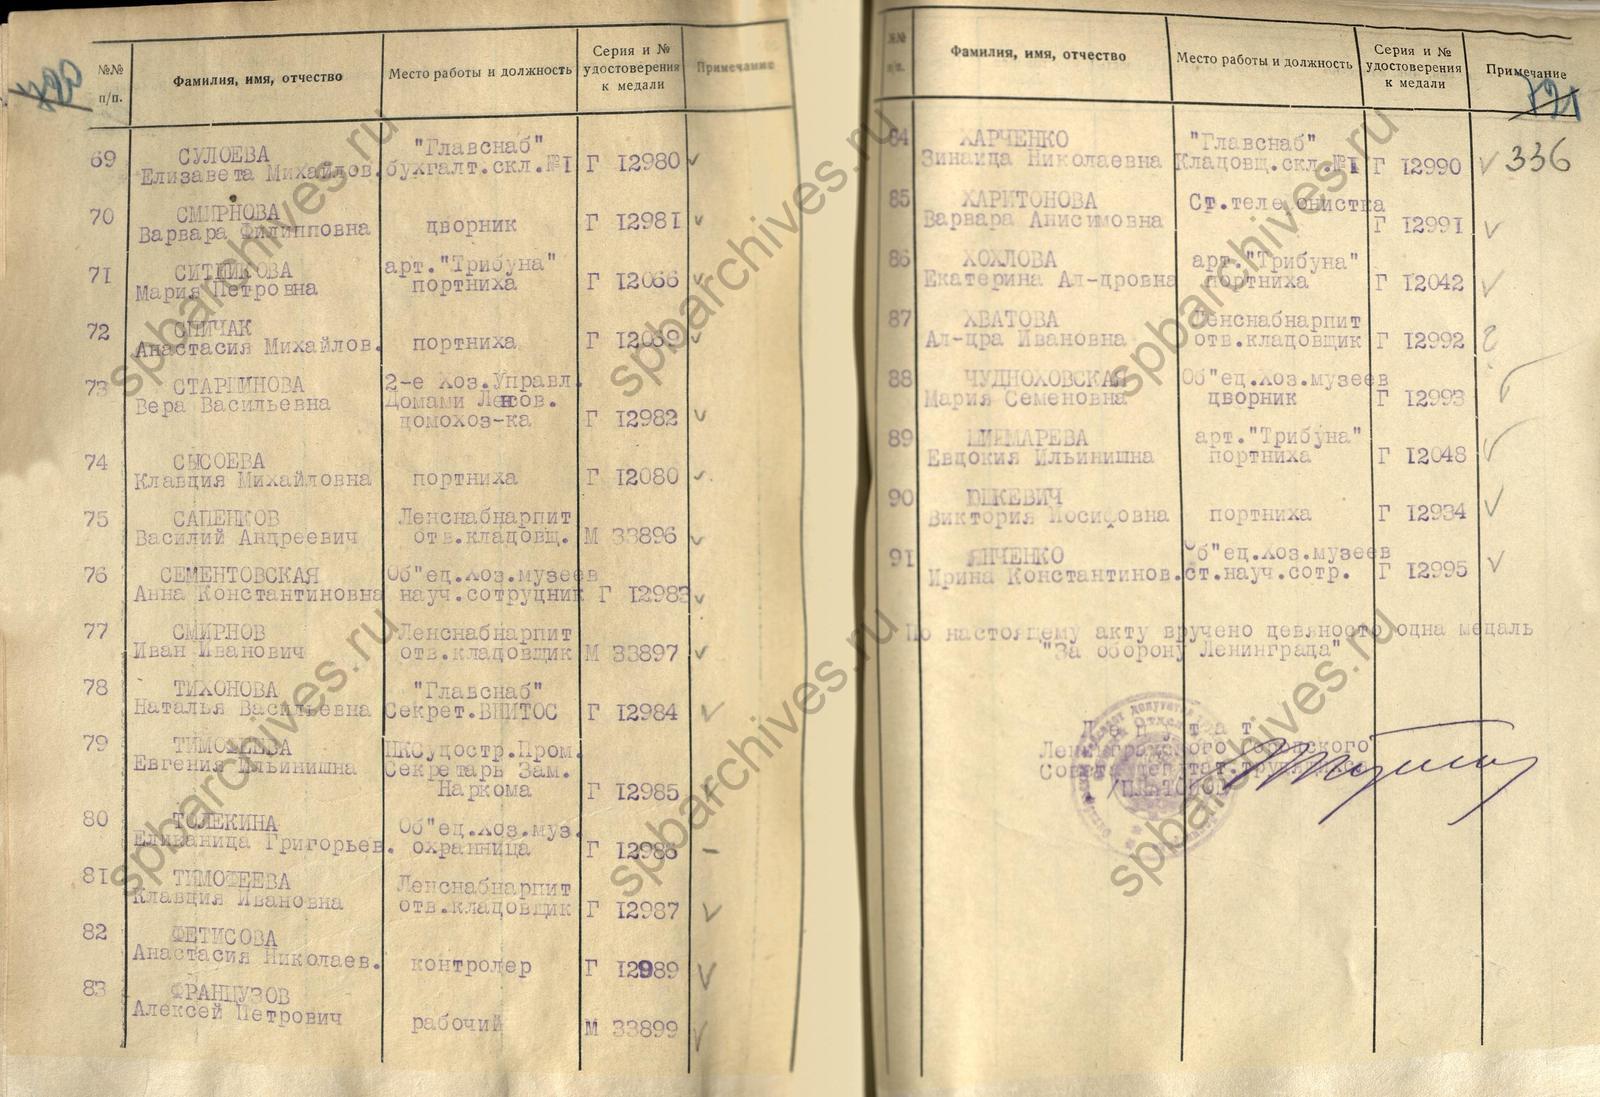 №№ п/п.
Фамилия, имя, отчество
Место работы и должность
Серия и № удостоверения к медали
Примечание
69 СУЛОЕВА "Главснаб"
Елизавета Михайлов. бухгалт.скл.№I Г I2980
70 СМИРНОВА
Варвара Филипповна дворник Г I298I
71 СИТНИКОВА арт."Трибуна"
Мария Петровна портниха Г I2066
72 СПИЧАК
Анастасия Михайлов. портниха Г
73 2-е Хоз.Управл.
Вера Васильевна Домами Ленсов.
домохоз-ка Г I2982
74 СЫСОЕВА
Клавдия Михайловна портниха Г I2080
75 САПЕНКОВ Ленснабнарпит
Василий Андреевич отв.кладовщ. М 33896
76 СЕМЕНТОВСКАЯ Об"ед.Хоз.музеев
Анна Константиновна науч.сотрудник Г I2983
77 СМИРНОВ Ленснабнарпит
Иван Иванович отв.кладовщик М 33897
78 ТИХОНОВА "Главснаб"
Наталья Васильевна Секрет.ВНИТОС Г I2984
79 ТИМОФЕЕВА НКСудостр.Пром.
Евгения Ильинишна Секретарь Зам.
Наркома Г I2985
80 ТОЛЕКИНА Об"ед.Хоз.муз.
Григорьев. охранница Г I2986
81 ТИМОФЕЕВА Ленснабнарпит
Клавдия Ивановна отв.кладовщик Г I2987
82 ФЕТИСОВА
Анастасия Николаев. контролер Г I2989
83 ФРАНЦУЗОВ
Алексей Петрович рабочий М 33899
№№ п/п.
Фамилия, имя, отчество
Место работы и должность
Серия и № удостоверения к медали
Примечание
336
84 ХАРЧЕНКО "Главснаб"
Зинаида Николаевна Кладовщ.скл.№I Г I2990
85 ХАРИТОНОВА Ст.телефонистка
Варвара Анисимовна Г I299I
86 ХОХЛОВА арт."Трибуна"
Екатерина Ал-дровна портниха Г I2042
87 ХВАТОВА Ленснабнарпит
Ал-дра Ивановна отв.кладовщик Г I2992
88 ЧУДНОХОВСКАЯ Об"ед.Хоз.музеев
Мария Семеновна дворник Г I2993
89 арт."Трибуна"
Евдокия Ильинишна портниха Г I2048
90 ЮШКЕВИЧ
Виктория Иосифовна портниха Г I2934
91 ЯНЧЕНКО Об"ед.Хоз.музеев
Ирина Константинов. ст.науч.сотр. Г I2995
По настоящему акту вручено девяносто одна медаль
"За оборону Ленинграда"
Депутат
Ленинградского Городского
Совета депутат.трудящ.
/ПЛАТОНОВ/
spbarchives.ru
spbarchives.ru
spbarchives.ru
spbarchives.ru
spbarchives.ru
spbarchives.ru